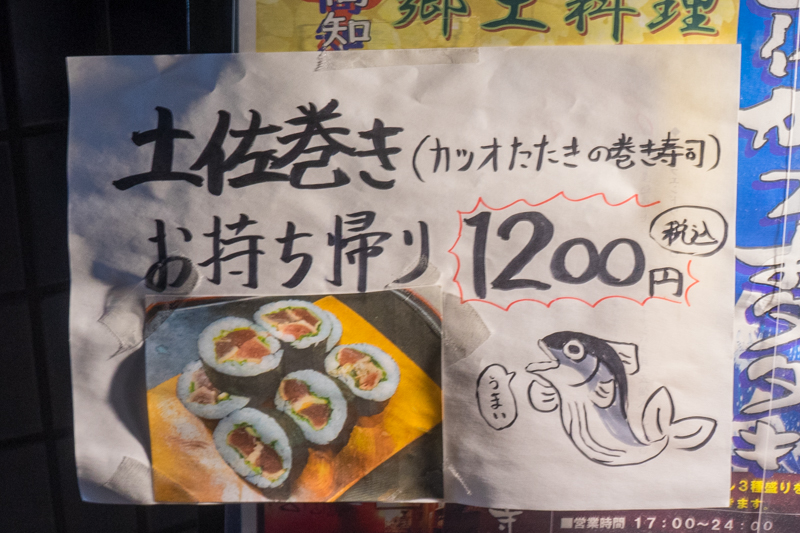 高知
郷土料理
土佐巻き(カツオたたきの巻き寿司)
お持ち帰り 1200円 税込
うまい
3種盛りを
ます。
■営業時間 17:00〜24:00